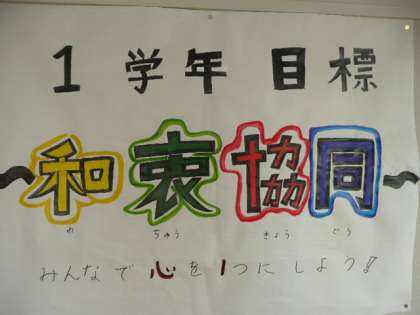 1学年 目標
~和衷協同~
わ ちゅう きょう どう
みんなで心を1つにしよう!!